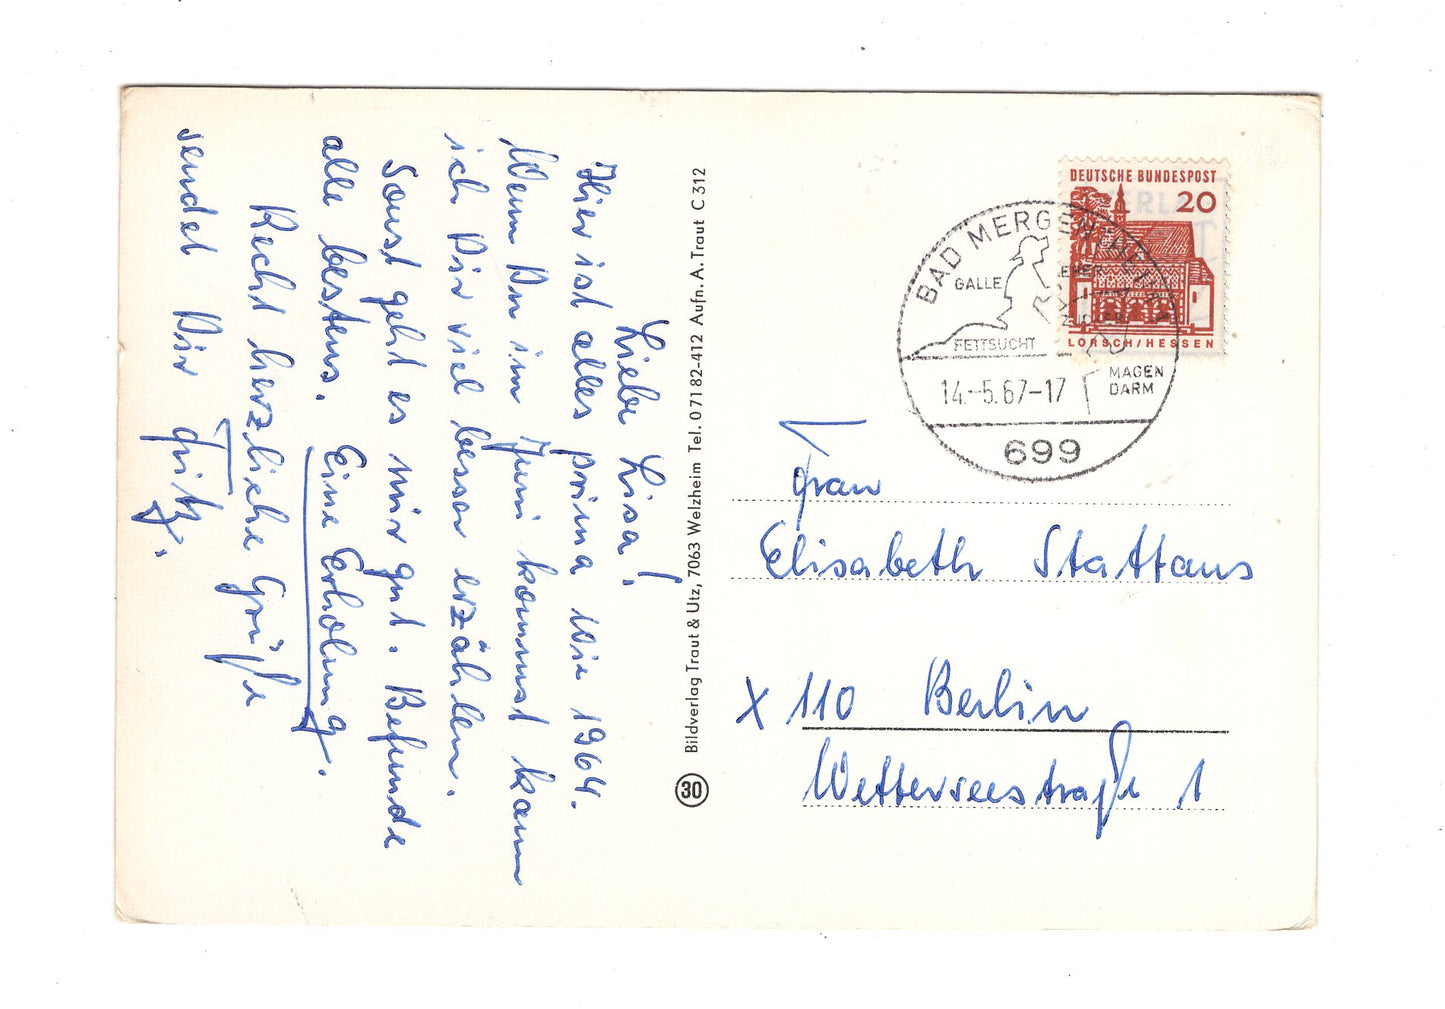 Liebe Lisa!
Hier ist alles prima wie 1964.
Wenn Du im Juni kommst kann
ich Dir viel besser erzählen.
Sonst geht es mir gut. Befunde
alle bestens. Eine Erholung.
Recht herzliche Grüße
sendet Dir Fritz.
Bildverlag Traut & Utz, 7063 Welzheim Tel. 0 71 82-412 Aufn. A. Traut C 312
30
DEUTSCHE BUNDESPOST
20
LORSCH/HESSEN
BAD MERGENTHEIM
GALLE
LEBER
ZUCKER
FETTSUCHT
MAGEN
DARM
14.-5.67-17
699
Frau
Elisabeth Stattaus
x 110 Berlin
Wetterseestraße 1